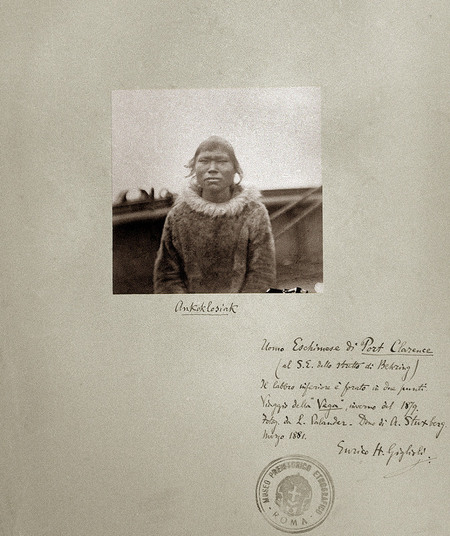 Ankoklosiak
Uomo Eschimese di Port Clarence
(al S.E. dello stretto di Behring)
Il labbro inferiore è forato in due punti.
Viaggio della "Vega", inverno del 1879.
Fotog. da L. Palander. Dono di A. Stuxberg
Marzo 1881.
Enrico H. Giglioli.
MUSEO PREISTORICO ETNOGRAFICO
ROMA